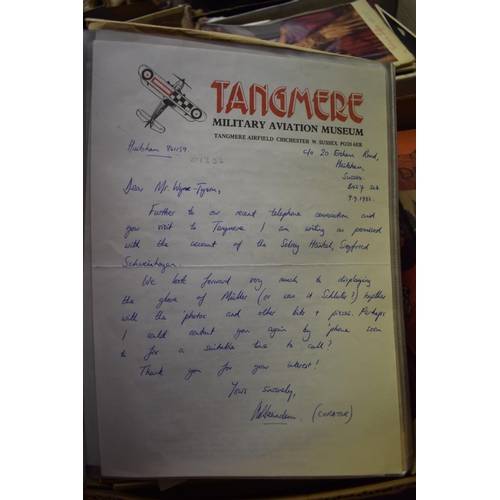 TANGMERE
MILITARY AVIATION MUSEUM
TANGMERE AIRFIELD CHICHESTER W. SUSSEX PO20 6ER
Hailsham 841159.
c/o 20 Ersham Road,
Hailsham,
Sussex.
9.9.1982.
Dear Mr. Wynne-Tyson,
Further to our recent telephone conversation and
your visit to Tangmere I am writing as promised
with the account of the Selsey Heinkel, Siegfried
We look forward very much to displaying
the glove of Müller (or was it Schlüter?) together
with the photos and other bits & pieces. Perhaps
I could contact you again by 'phone soon
to fix a suitable time to call?
Thank you for your interest!
Yours sincerely,
(CURATOR)